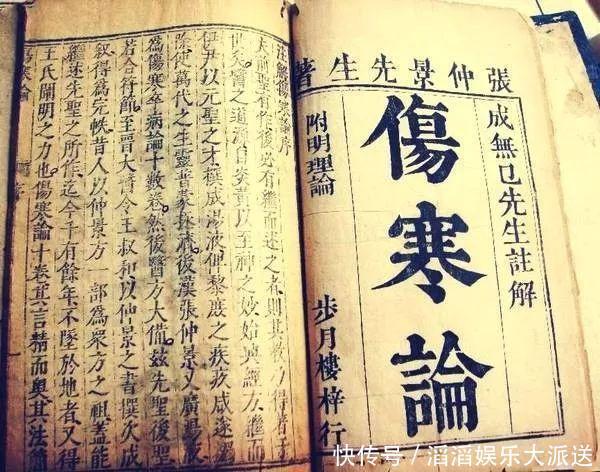 張仲景先生著
成無已先生註解
傷寒論
附明理論
步月樓梓行
注解傷寒論序
夫前聖有作後必有繼而述之者則其教乃得著于
世矣醫之道源自炎黃以至神之妙始興經方繼而
伊尹以元聖之才撰成湯液俾黎庶之疾疚咸遂蠲
除使萬代之生靈普蒙拯濟後漢張仲景又廣湯液
為傷寒卒病論十數卷然後醫方大備茲先聖後聖
若合符節至晉太醫令王叔和以仲景之書撰次成
叙得為完帙昔人以仲景方一部為眾方之祖蓋能
繼述先聖之所作迄今千有餘年不墜於地者又得
王氏闡明之力也傷寒論十卷其言精而奧其法簡
傷寒論
快传号/滔滔娱乐大派送